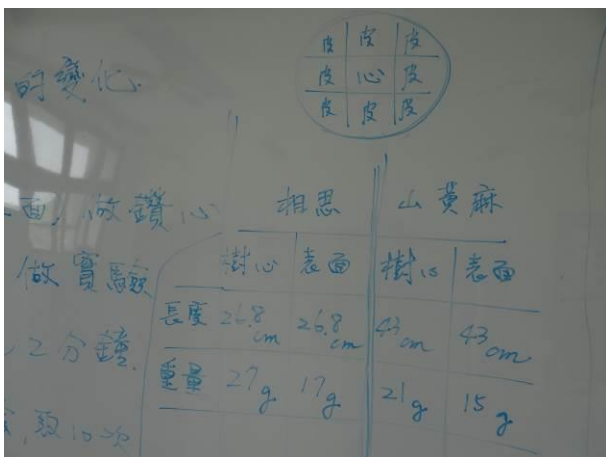 皮 皮 皮
皮 心 皮
皮 皮 皮
的變化.
面, 做鑽心
做實驗
2分鐘.
數10次
相思 山黃麻
樹心 表面 樹心 表面
長度 26.8cm 26.8cm 43cm 43cm
重量 27g 17g 21g 15g